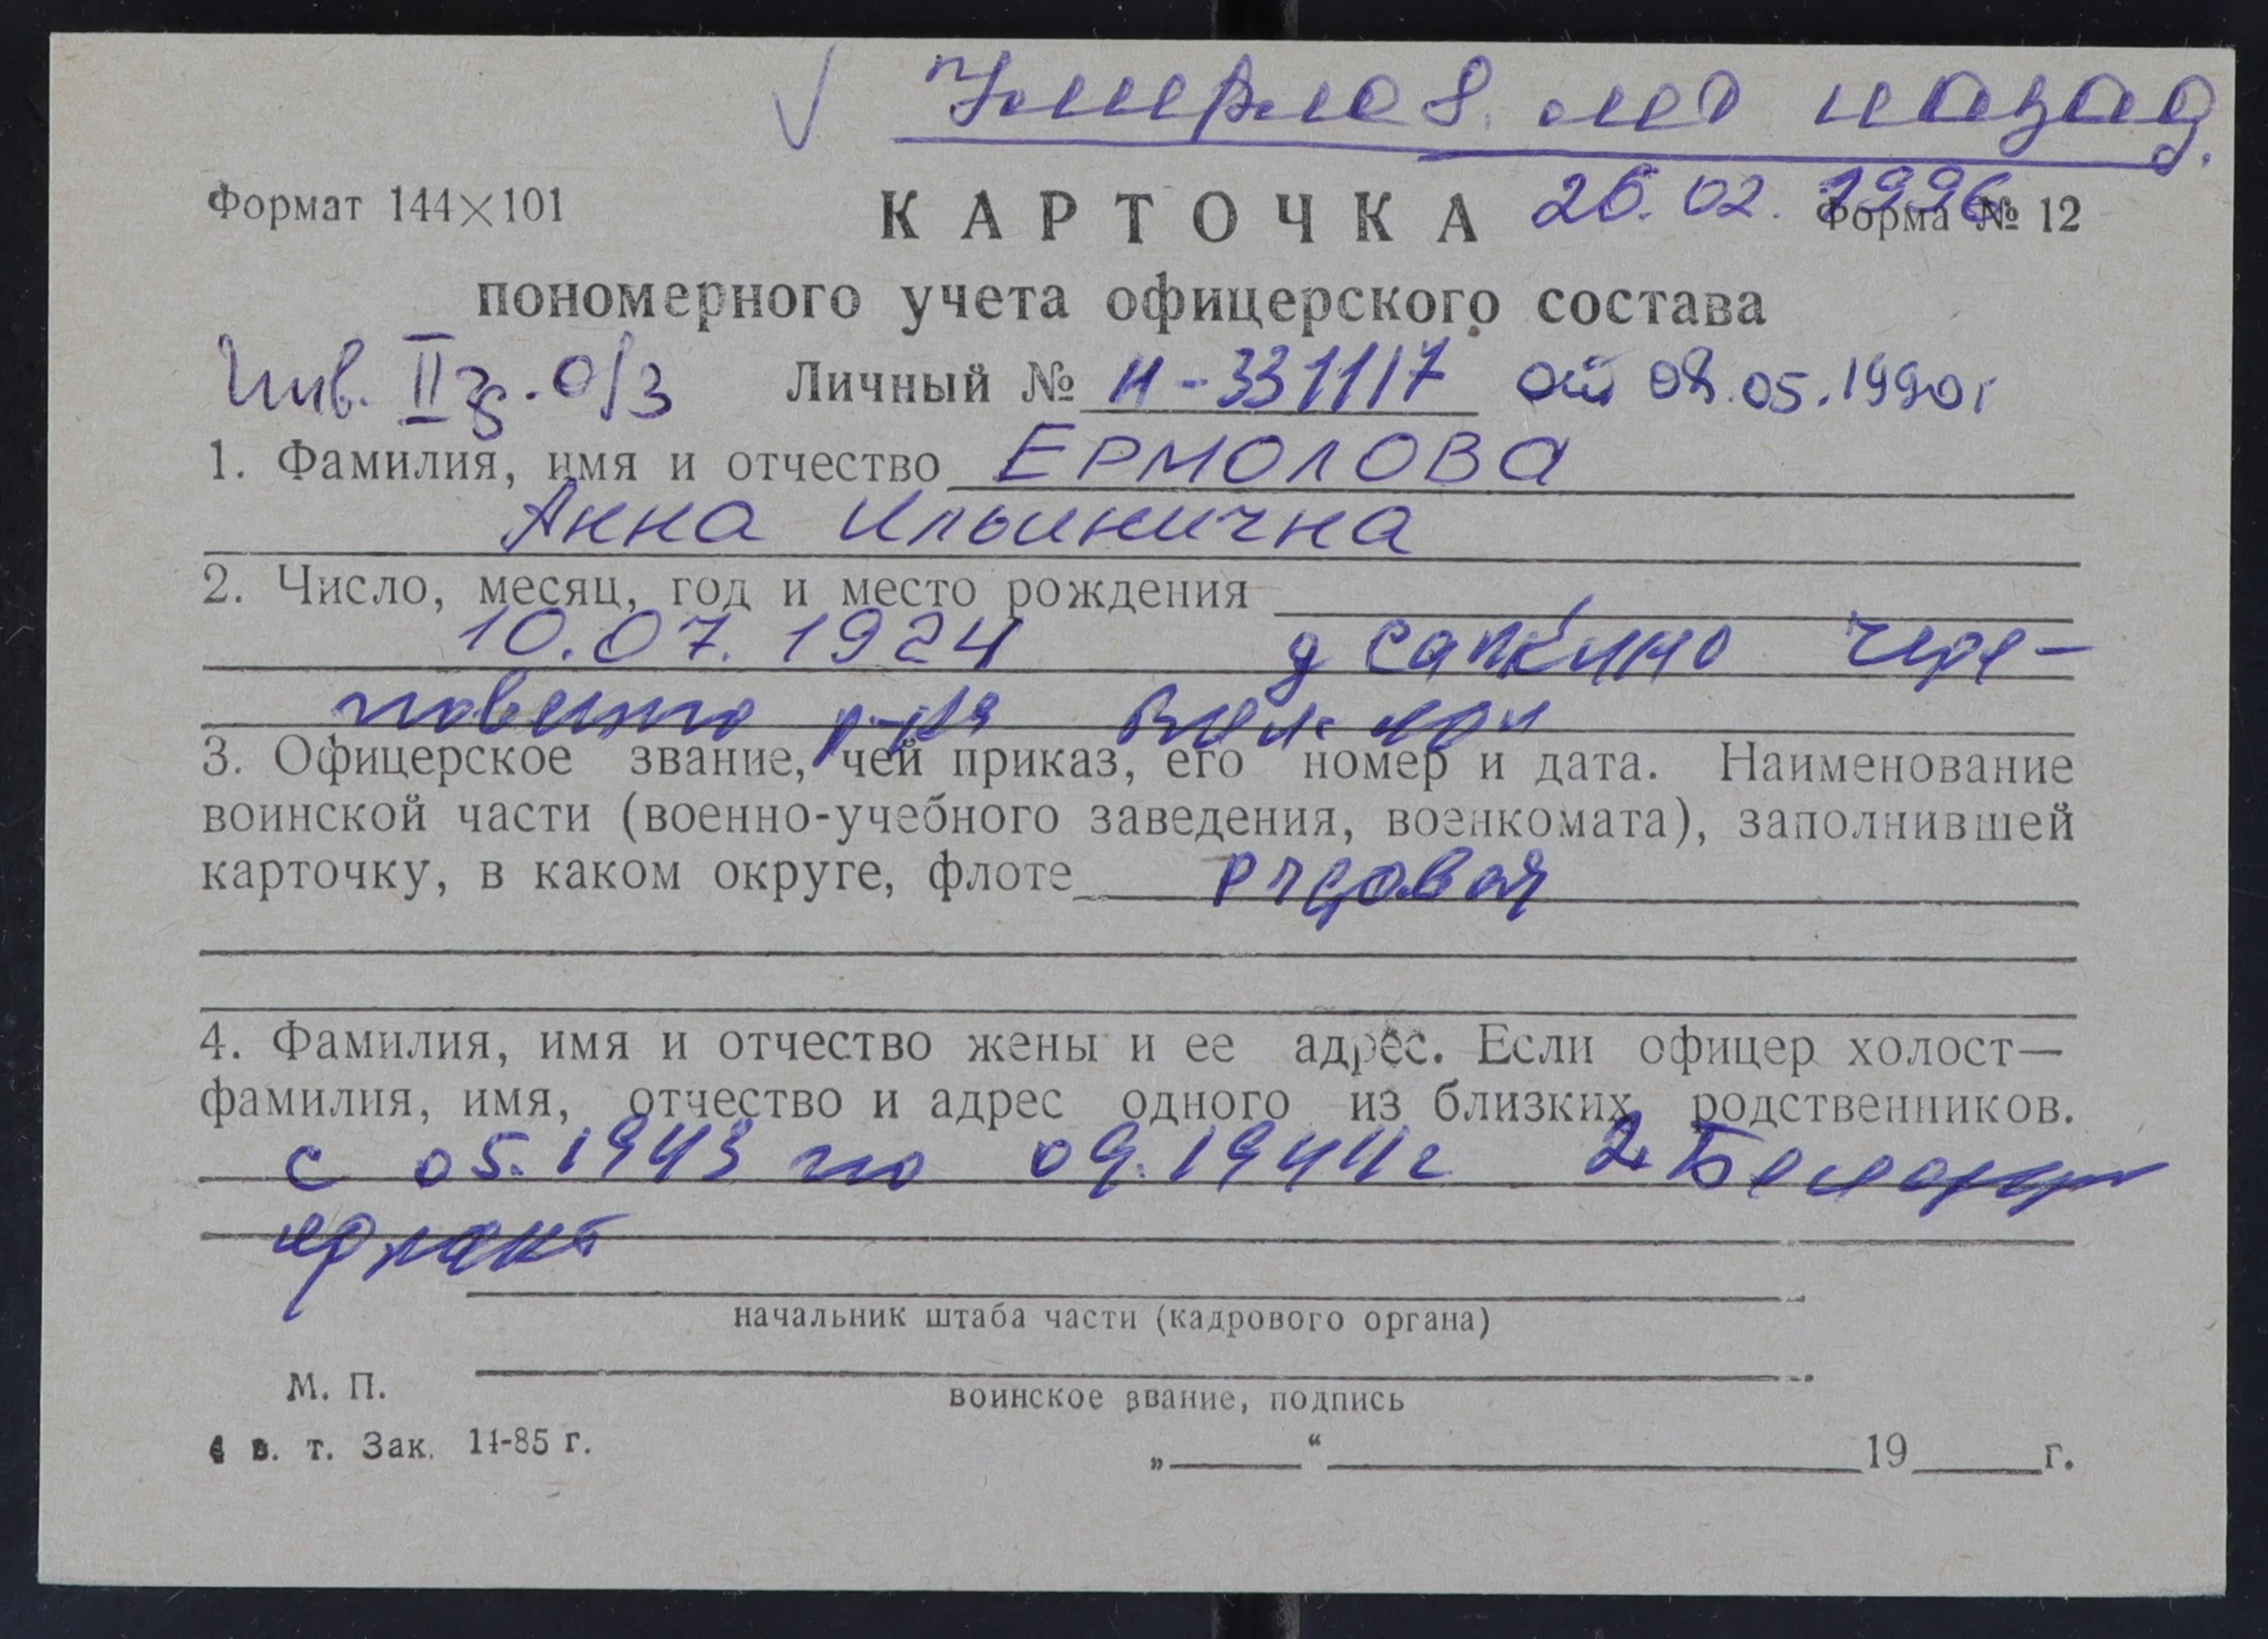 √ Умерла 8. лет назад.
Формат 144×101 КАРТОЧКА 26.02.1996 Форма № 12
пономерного учета офицерского состава
Инв. II гр. о/з Личный № Н-331117 от 08.05.1990г
1. Фамилия, имя и отчество ЕРМОЛОВА
Анна Ильинична
2. Число, месяц, год и место рождения
10.07.1924 д Сапкино Чере-
повецкого р-на Вол
3. Офицерское звание, чей приказ, его номер и дата. Наименование
воинской части (военно-учебного заведения, военкомата), заполнившей
карточку, в каком округе, флоте рядовая
4. Фамилия, имя и отчество жены и ее адрес. Если офицер холост—
фамилия, имя, отчество и адрес одного из близких родственников.
с 05.1943 по 09.1944г 2 Белорус
фронт
начальник штаба части (кадрового органа)
М. П.
воинское звание, подпись
в. т. Зак. 14-85 г.
„ “ 19 г.